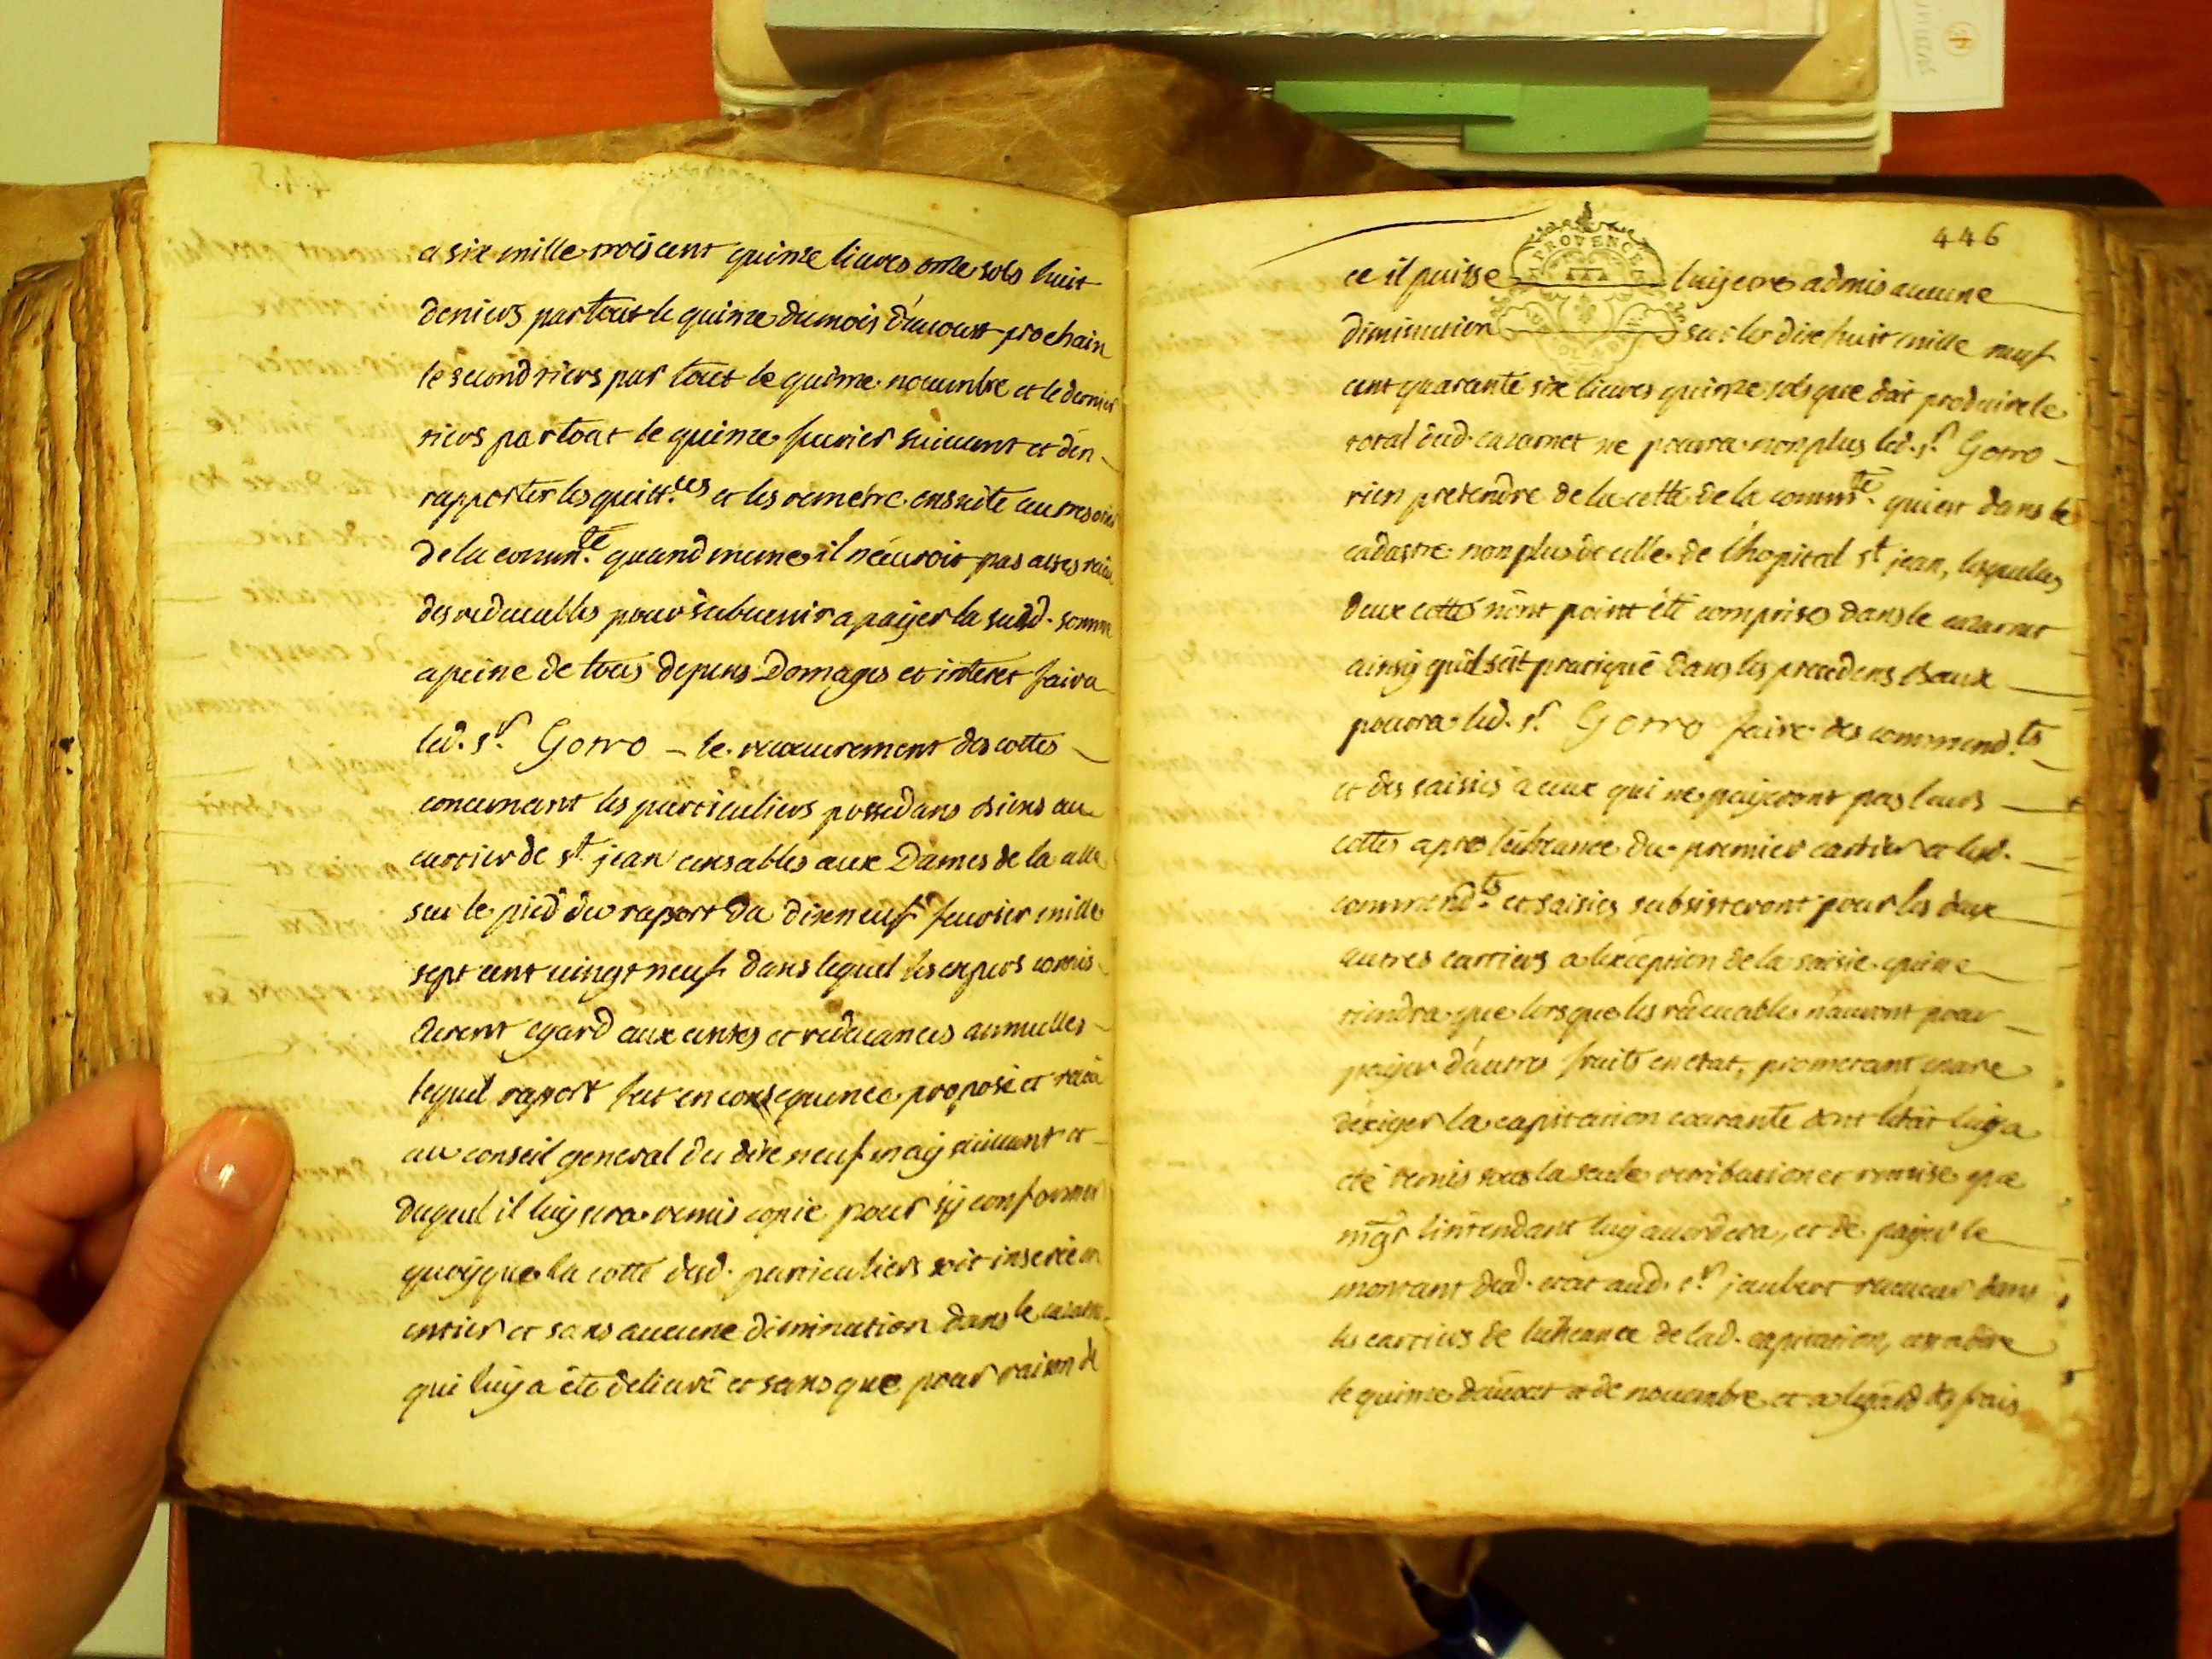 a six mille trois cent quinze livres onze sols huit
deniers par tout le quinze du mois d'aoust prochain
le second tiers par tout le quinze novembre et le dernier
tiers par tout le quinze fevrier suivant et d'en
rapporter les quitt.ces et les remetre ensuite au tresorier
de la comm.te quand meme il n'auroit pas asses
des redevables pour subvenir a payer la susd. somme
a peine de tous depens Domages et interet faira
led. sr. Gorro - le recouvrement des cottes
concernant les particuliers possedans biens au
cartier de st jean censables aux Dames de la celle
sur le pied du raport du dixneuf fevrier mille
sept cent vingt neuf dans lequel les expers
eurent egard aux censes et redevances annuelles
lequel raport fut en consequence proposé et
au conseil general du dix neuf may suivant et
duquel il luy sera remis copie pour s'y conformer
quoyque la cotte desd. particuliers soit inserée en
entier et sans aucune diminution dans le cazarnet
qui luy a eté delivré et sans que pour raison de
446
PROVENCE
ce il puisse luy etre admis aucune
diminution sur les dix huit mille neuf
cent quarante six livres quinze sols que doit produire le
total dud. cazarnet ne pourra non plus led. sr. Gorro
rien pretendre de la cotte de la comm.te qui est dans le
cadastre non plus de celle de l'hopital st jean, lesquelles
deux cottes n'ont point été comprises dans le cazarnet
ainsy qu'il s'est pratiqué dans les precedens baux
pourra led. sr. Gorro faire des commend.ts
et des saisies a ceux qui ne payeront pas leurs
cottes apres l'echeance du premier cartier et lesd.
commend.ts et saisies subsisteront pour les deux
autres cartiers a l'exception de la saisie qui ne
tiendra que lorsque les redevables n'auront pour
payer d'autres fruits en etat, prometant encore
d'exiger la capitation courante dont l'etat luy a
eté remis sous la seule retribution et remise que
mgr l'intendant luy accordera, et de payer le
montant dud. etat aud. sr. jaubert receveur dans
les cartiers de l'echeance de lad. capitation, cest a dire
le quinze d'aoust et de novembre et a l'egard des frais